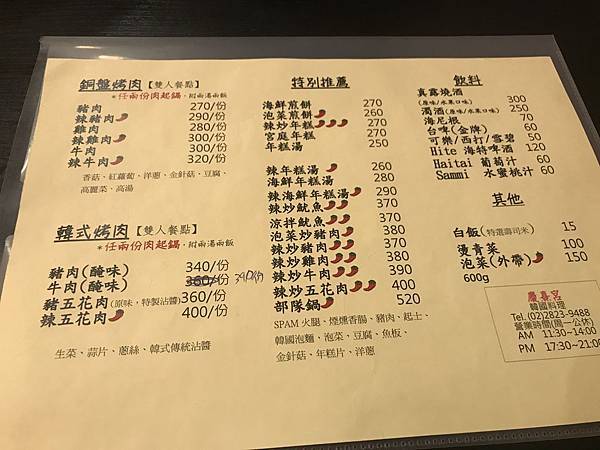 銅盤烤肉【雙人餐點】
*任兩份肉起鍋,附兩湯兩飯
豬肉 270/份
辣豬肉 290/份
雞肉 280/份
辣雞肉 300/份
牛肉 300/份
辣牛肉 320/份
香菇、紅蘿蔔、洋蔥、金針菇、豆腐、
高麗菜、高湯
韓式烤肉【雙人餐點】
*任兩份肉起鍋,附兩湯兩飯
豬肉(醃味) 340/份
牛肉(醃味) 360/份 390/份
豬五花肉(原味,特製沾醬) 360/份
辣五花肉 400/份
生菜、蒜片、蔥絲、韓式傳統沾醬
特別推薦
海鮮煎餅 270
泡菜煎餅 260
辣炒年糕 270
宮庭年糕 270
年糕湯 250
辣年糕湯 260
海鮮年糕湯 280
辣海鮮年糕湯 290
辣炒魷魚 370
涼拌魷魚 370
泡菜炒豬肉 380
辣炒豬肉 370
辣炒雞肉 380
辣炒牛肉 390
辣炒五花肉 400
部隊鍋 520
SPAM 火腿、煙燻香腸、豬肉、起士、
韓國泡麵、泡菜、豆腐、魚板、
金針菇、年糕片、洋蔥
飲料
真露燒酒
(原味/水果口味) 300
濁酒(原味/水果口味) 250
海尼根 70
台啤(金牌) 60
可樂/西打/雪碧 50
Hite 海特啤酒 120
Haitai 葡萄汁 60
Sammi 水蜜桃汁 60
其他
白飯(特選壽司米) 15
燙青菜 100
泡菜(外帶) 150
600g
慶喜宮
韓國料理
Tel.(02)2823-9488
營業時間(周一公休)
AM 11:30~14:00
PM 17:30~21:00